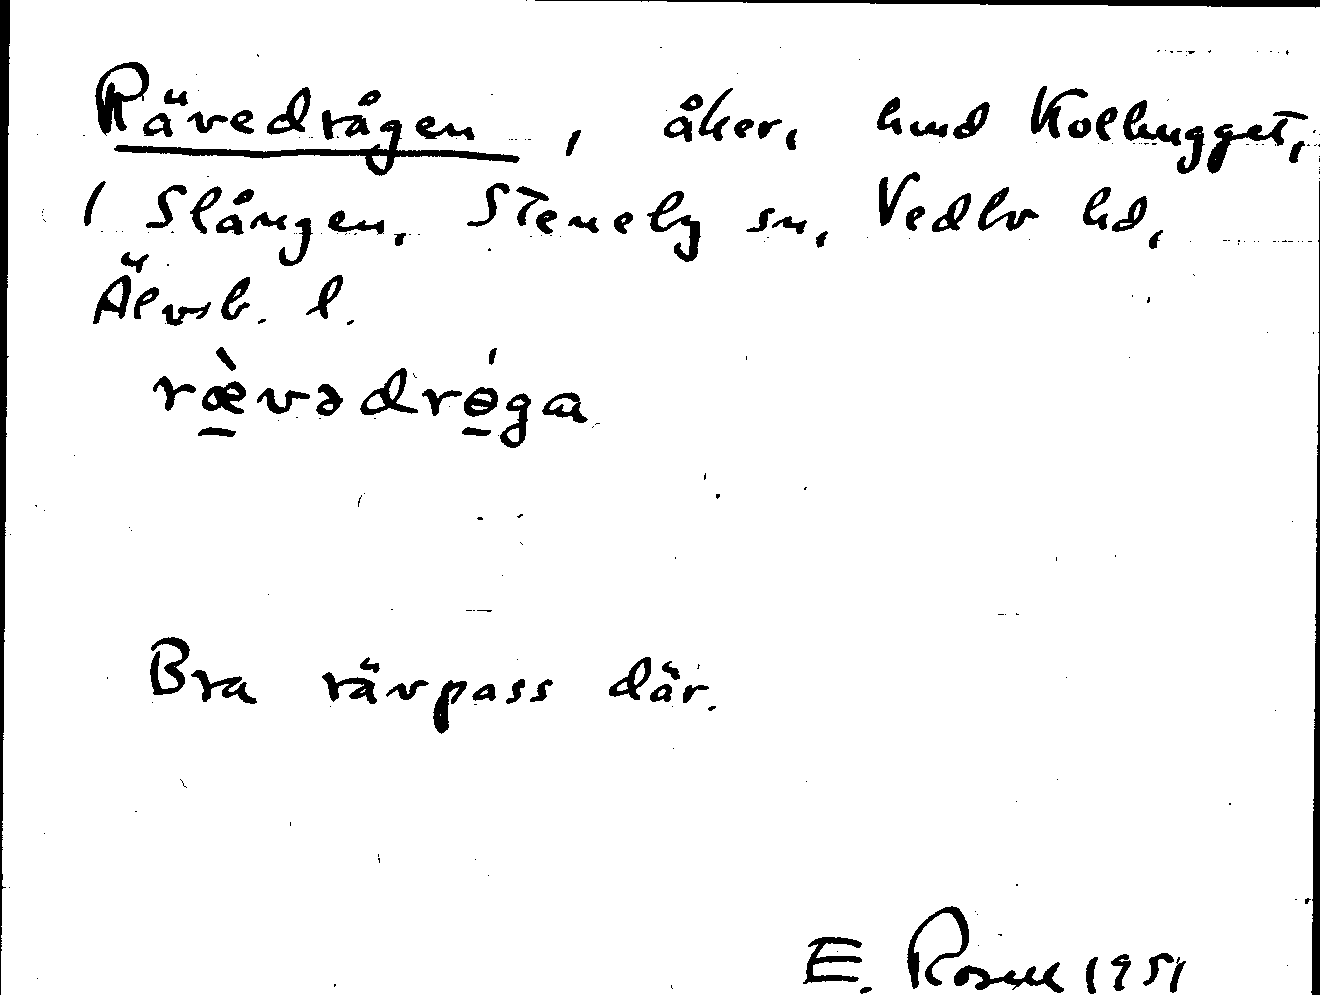 Rävedrågen, åker, hmd Kolhugget,
1 Slången, Steneby sn, Vedbo hd,
Älvsb. l.
rævədrɵga
Bra rävpass där.
E. Rosell 1951